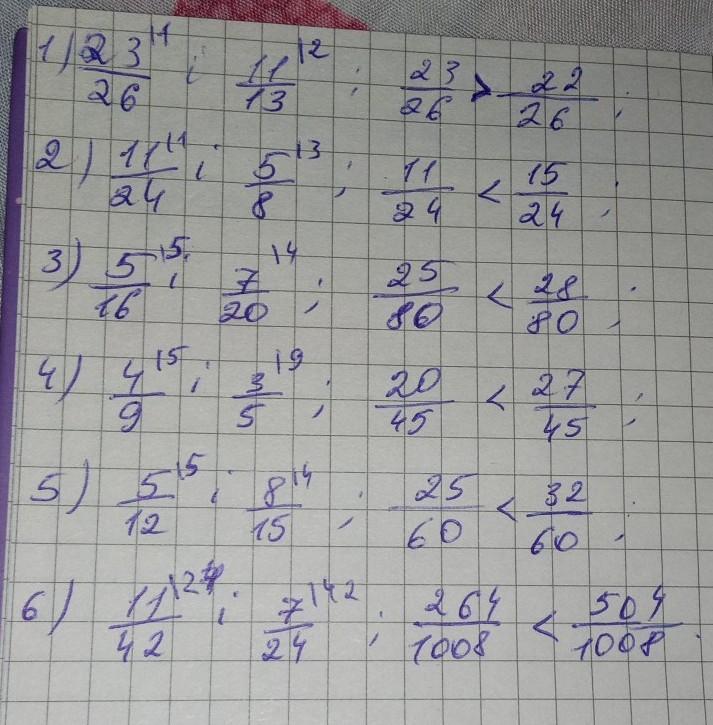 1) 23/26 |1 ; 11/13 |2 ; 23/26 > 22/26 ;
2) 11/24 |1 ; 5/8 |3 ; 11/24 < 15/24 ;
3) 5/16 |5 ; 7/20 |4 ; 25/80 < 28/80 ;
4) 4/9 |5 ; 3/5 |9 ; 20/45 < 27/45 ;
5) 5/12 |5 ; 8/15 |4 ; 25/60 < 32/60 ;
6) 11/42 |24 ; 7/24 |42 ; 264/1008 < 504/1008 .